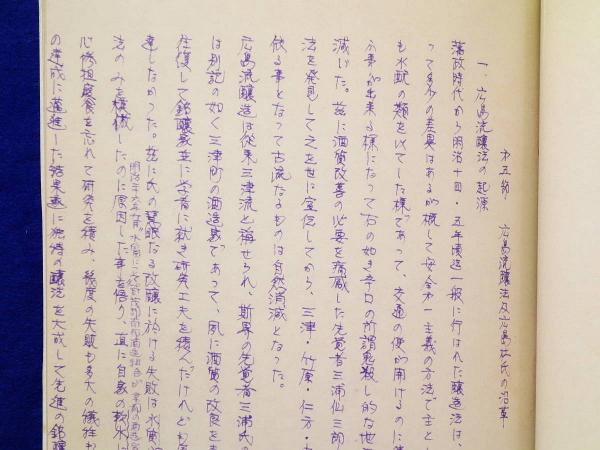 第五節 広島流醸法及広島杜氏の沿革
一、広島流醸法の起源
藩政時代から明治十四・五年頃迄一般に行はれた醸造法は、
って多少の差異はあるが概して安全第一主義の方法で主とし
も水酛の類を以てした様であって、交通の便が開けるのに
ふ事が出来る様になって右の如き辛口の所謂鬼殺し的な地
減いた。茲に酒質改善の必要を痛感した先覚者三浦仙三郎
法を発見して之を世に宣伝してから、三津・竹原・仁方・
依る事となって古流なるものは自然消滅となった。
広島流醸造は従来三津流と称せられ、斯界の先覚者三浦氏の
は別記の如く三津町の酒造家であって、夙に酒質の改良を
往復して銘醸家並に学者に就き研究工夫を積んだけれども
達しなかった。茲に氏の慧眼なる改醸に於ける失敗は水質
法のみを模倣したのに原因した事を悟り、直に自家の軟水
心修担寝食を忘れて研究を積み、幾度の失敗も多大の犠牲も
の達成に邁進した結果遂に独特の醸法を大成して先進の銘醸